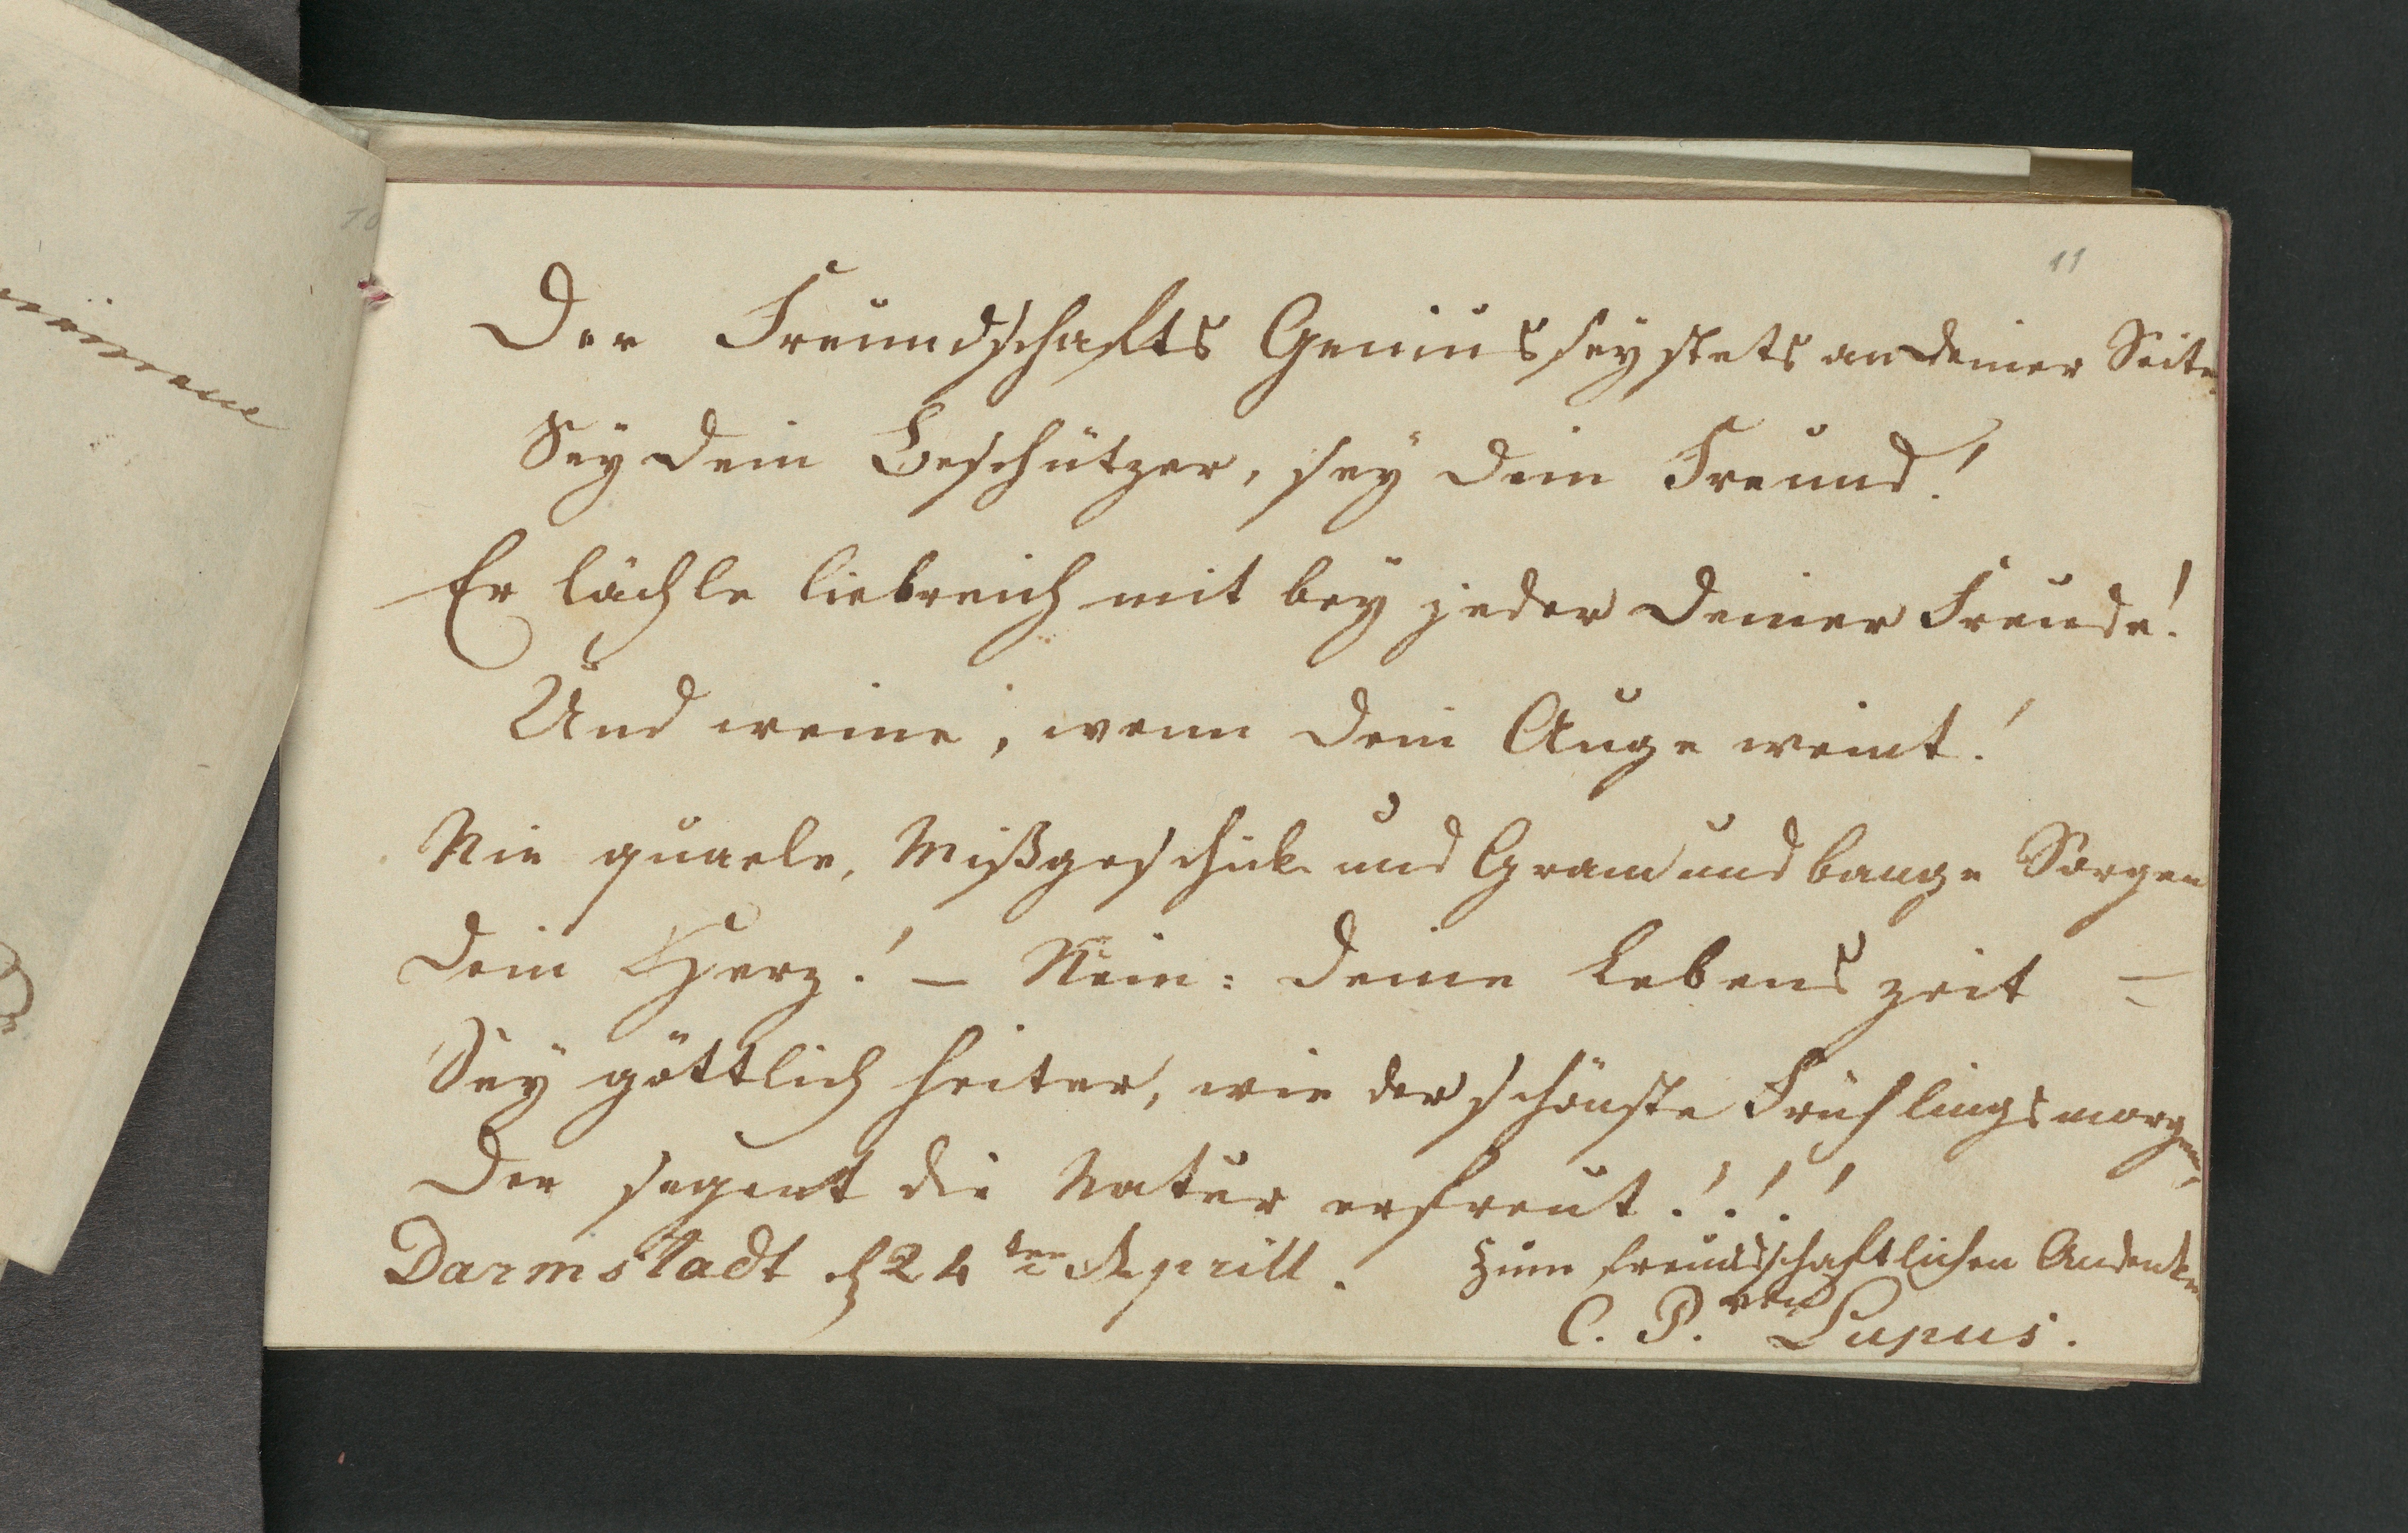 11
Der Freundschafts Genius sey stets an deiner Seite
Sey dein Beschützer, sey dein Freund!
Er lächle liebreich mit bey jeder deiner Freude!
Und weine, wenn dein Auge weint!
Nie quaele, Mißgeschick und Gram und bange Sorgen
dein Herz! – Nein: deine Lebenszeit –
Sey göttlich heiter, wie der schönste Frühlingsmorgen,
Der segent die Natur erfreut!!!
Darmstadt d 24ten Aprill. Zum freundschaftlichen Andenken
von
C. P. Lupus.